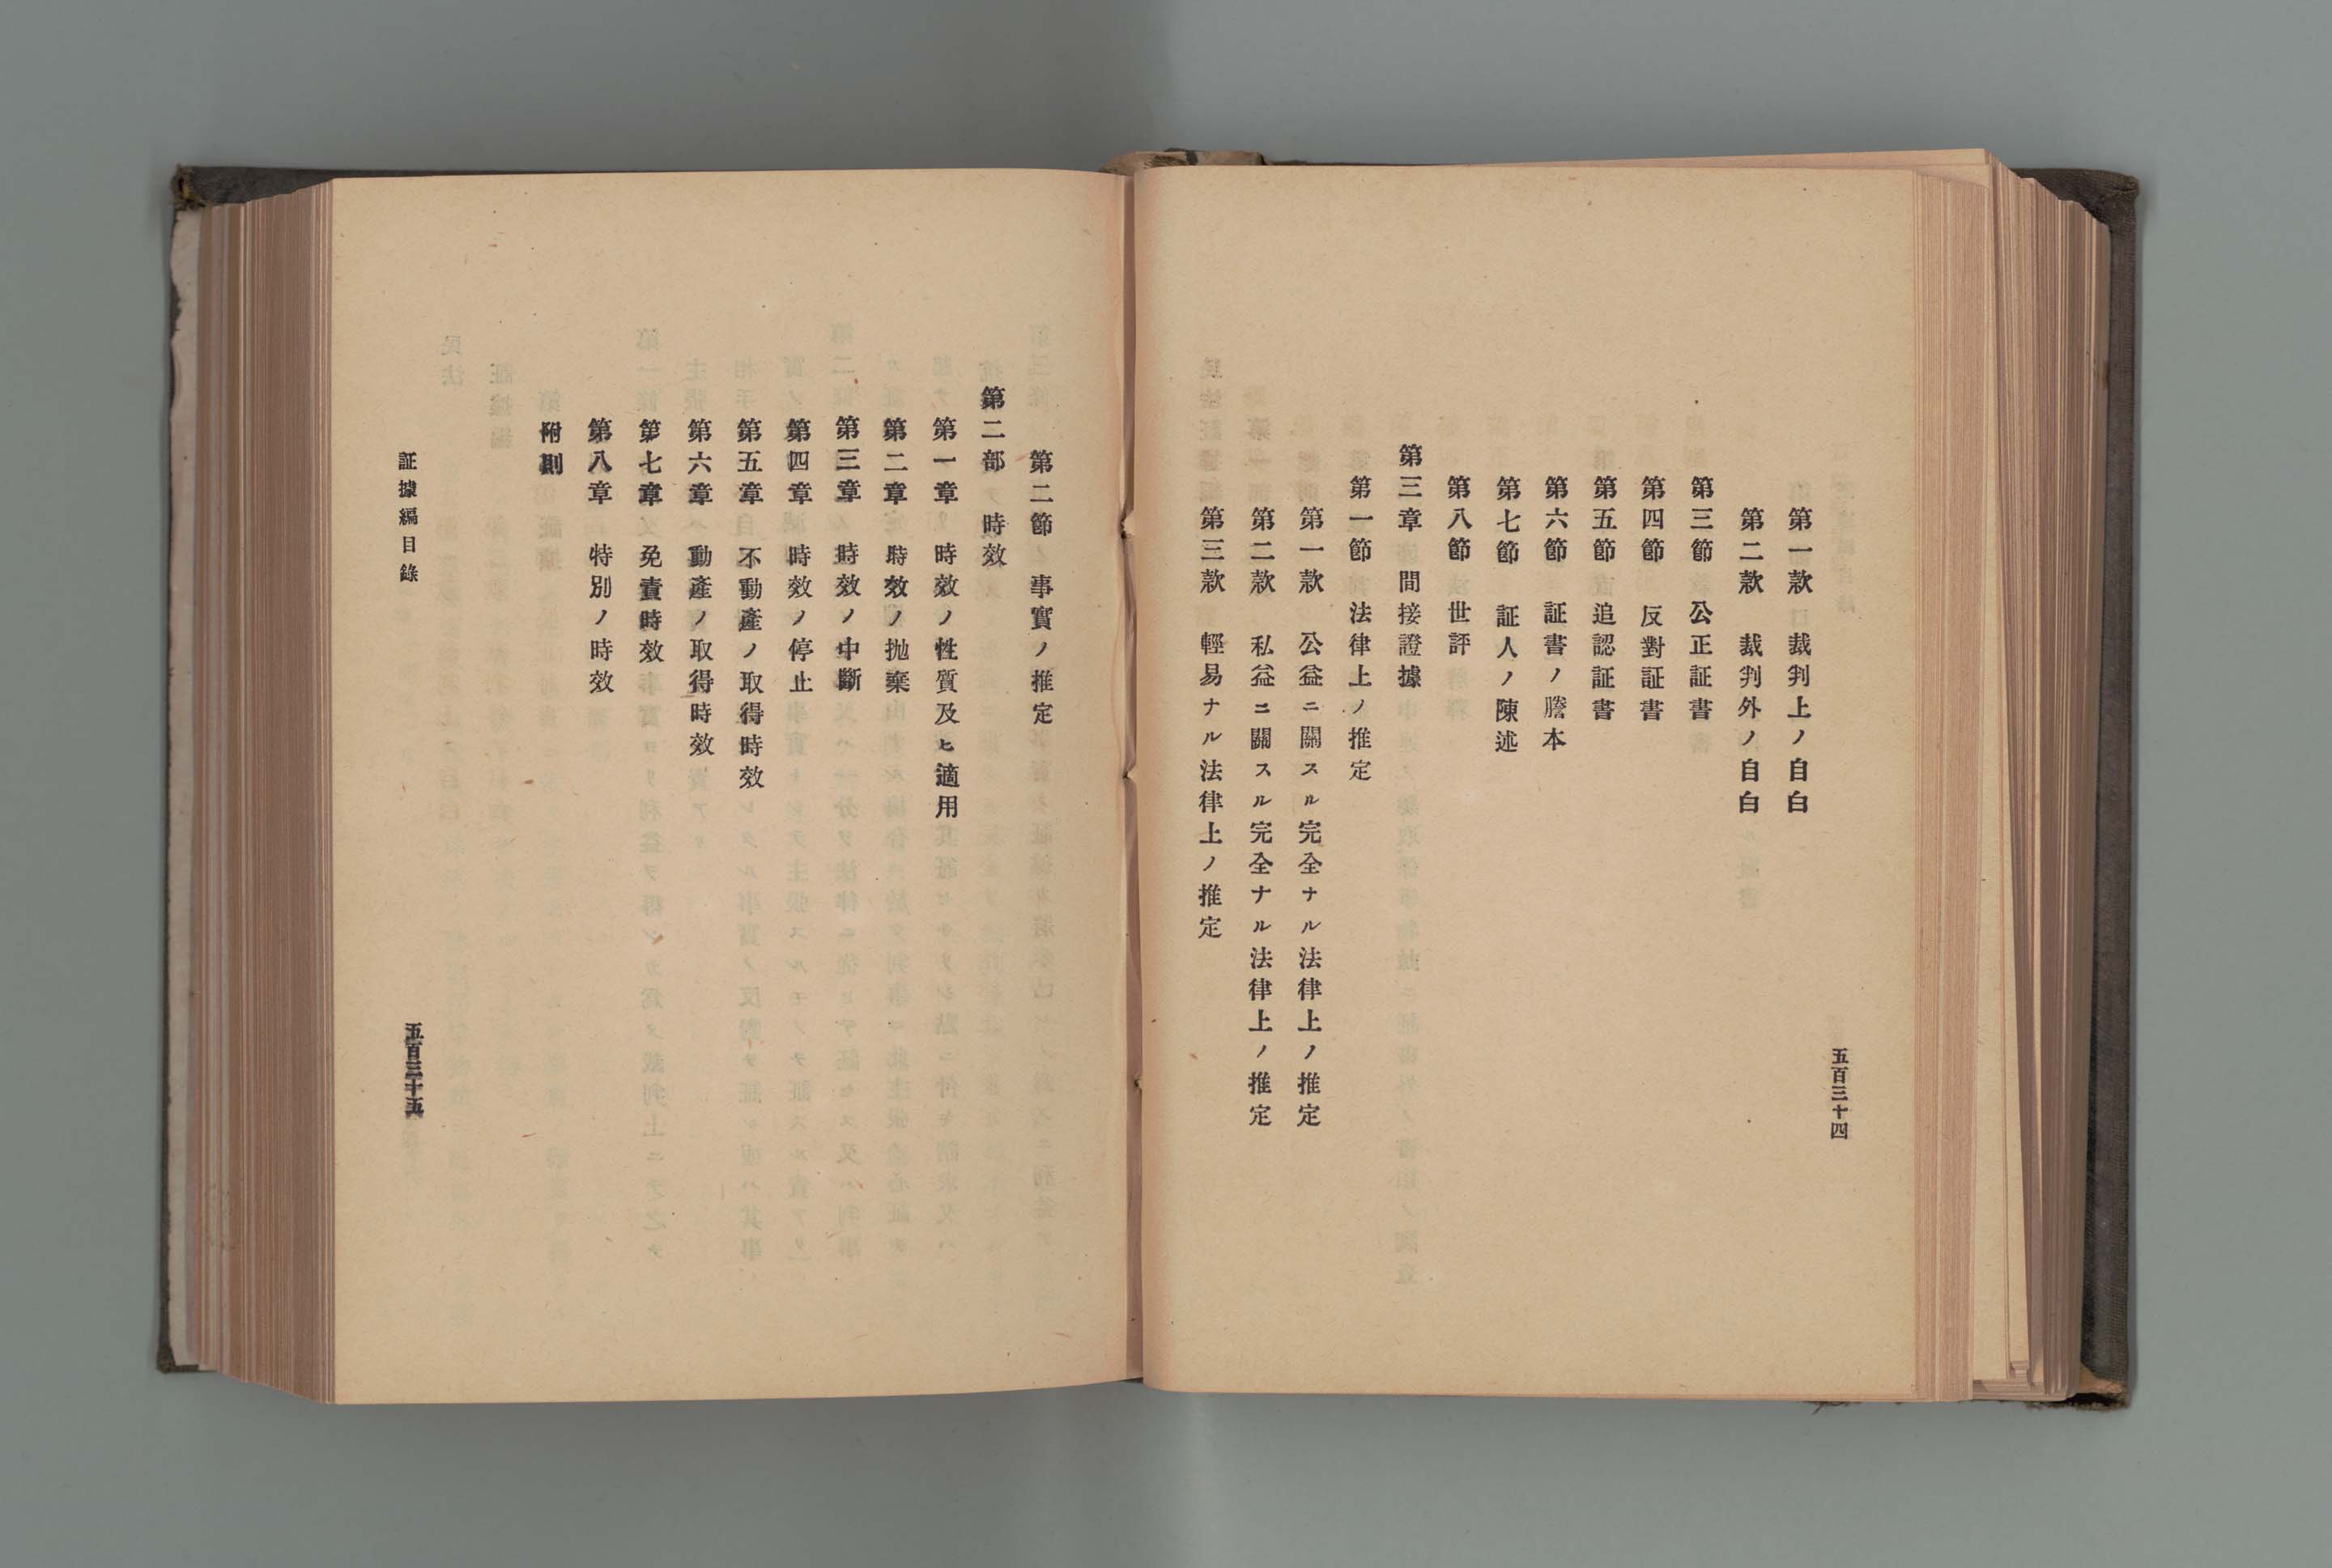 五百三十四
第一款　裁判上ノ自白
第二款　裁判外ノ自白
第三節　公正証書
第四節　反對証書
第五節　追認証書
第六節　証書ノ謄本
第七節　証人ノ陳述
第八節　世評
第三章　間接證據
第一節　法律上ノ推定
第一款　公益ニ關スル完全ナル法律上ノ推定
第二款　私益ニ關スル完全ナル法律上ノ推定
第三款　輕易ナル法律上ノ推定
第二節　事實ノ推定
第二部　時效
第一章　時效ノ性質及ヒ適用
第二章　時效ノ抛棄
第三章　時效ノ中斷
第四章　時效ノ停止
第五章　不動產ノ取得時效
第六章　動產ノ取得時效
第七章　免責時效
第八章　特別ノ時效
附則
証據編目錄
五百三十五